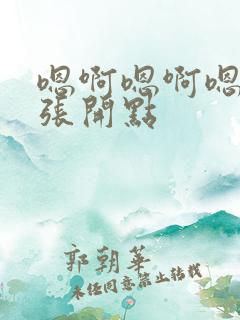 嗯啊嗯啊嗯
張開點
郭朝華
未任同意禁止转载